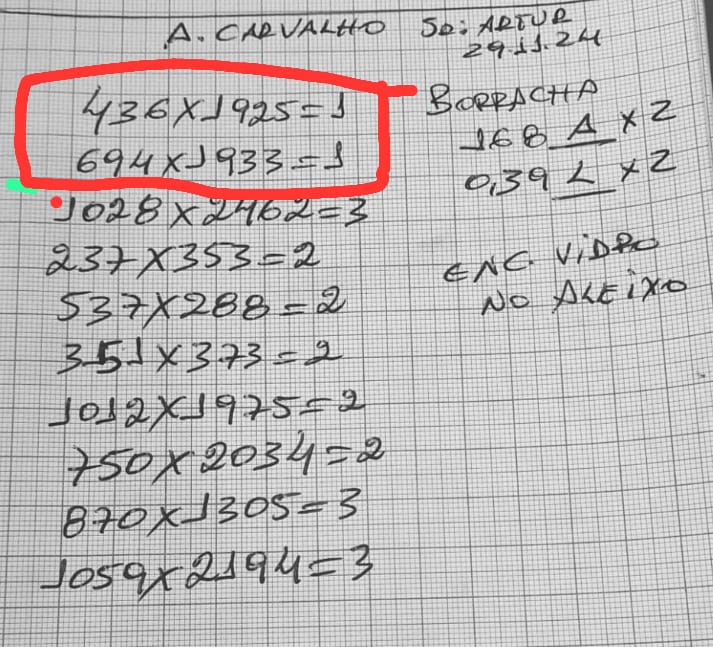 A. CARVALHO SR: ARTUR
29.11.24
436X1925=1
694X1933=1
1028X2462=3
237X353=2
537X288=2
351X373=2
1012X1975=2
750X2034=2
870X1305=3
1059X2194=3
BORRACHA
168 A X2
0,39 L X2
ENC. ViDRO
NO ALEiXO